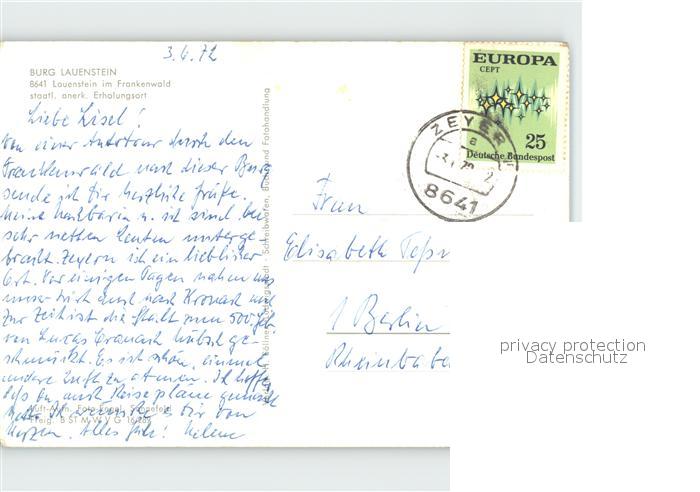 3.6.72
BURG LAUENSTEIN
8641 Lauenstein im Frankenwald
staatl. anerk. Erholungsort
Liebe Liesel!
Von einer Autotour durch den
Frankenwald nach dieser Burg
sende ich Dir herzliche Grüße.
Meine Nachbarin u. ich sind bei
sehr netten Leuten unterge-
bracht. Zeyern ist ein lieblicher
Ort. Vor einigen Tagen nahm uns
unser Wirt mit nach Kronach
Zur Zeit ist die Stadt zum 500.
von Lucas Cranach hübsch ge-
schmückt. Es ist schön, einmal
andere Luft zu atmen. Ich hoffe,
daß Du auch Reisepläne gemacht
Ich wünsche es Dir von
Herzen. Alles Gute! Helene
Luft-Aufn. Foto-Engel,
Freig. B ST M W V G
EUROPA
CEPT
25
Deutsche Bundespost
ZEYERN
a
8641
Frau
Elisabeth
1 Berlin
Rheinbabe
privacy protection
Datenschutz